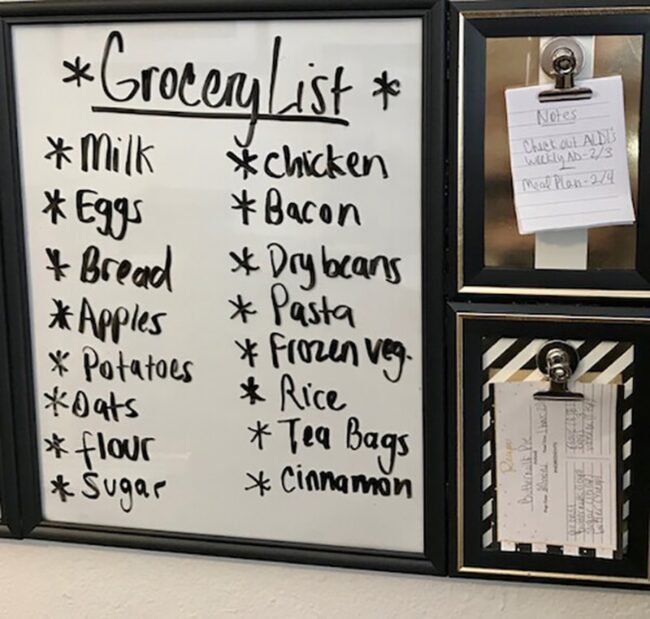 *Grocery List*
* Milk
* Eggs
* Bread
* Apples
* Potatoes
* Oats
* flour
* Sugar
* chicken
* Bacon
* Dry beans
* Pasta
* Frozen veg.
* Rice
* Tea Bags
* Cinnamon
Notes
Check out ALDI's
weekly AD-2/3
Meal Plan-2/4
Recipe
Buttermilk Pie